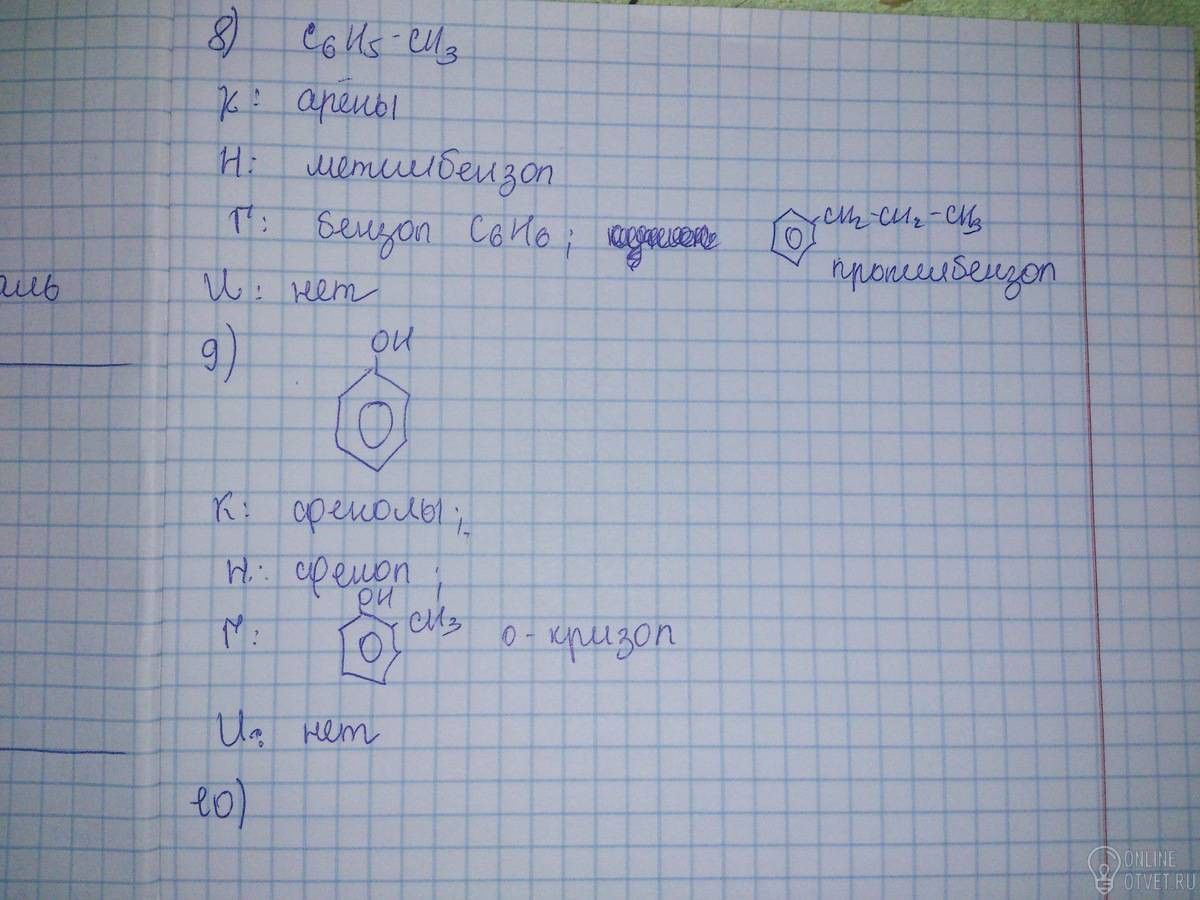 8) C6H5-CH3
К: арены
Н: метилбензол
Г: бензол C6H6; CH2-CH2-CH3
пропилбензол
аль
И: нет
9) OH
К: фенолы;
Н: фенол;
OH
Г: CH3 о-кризол
И: нет
10)
ONLINE
OTVET.RU